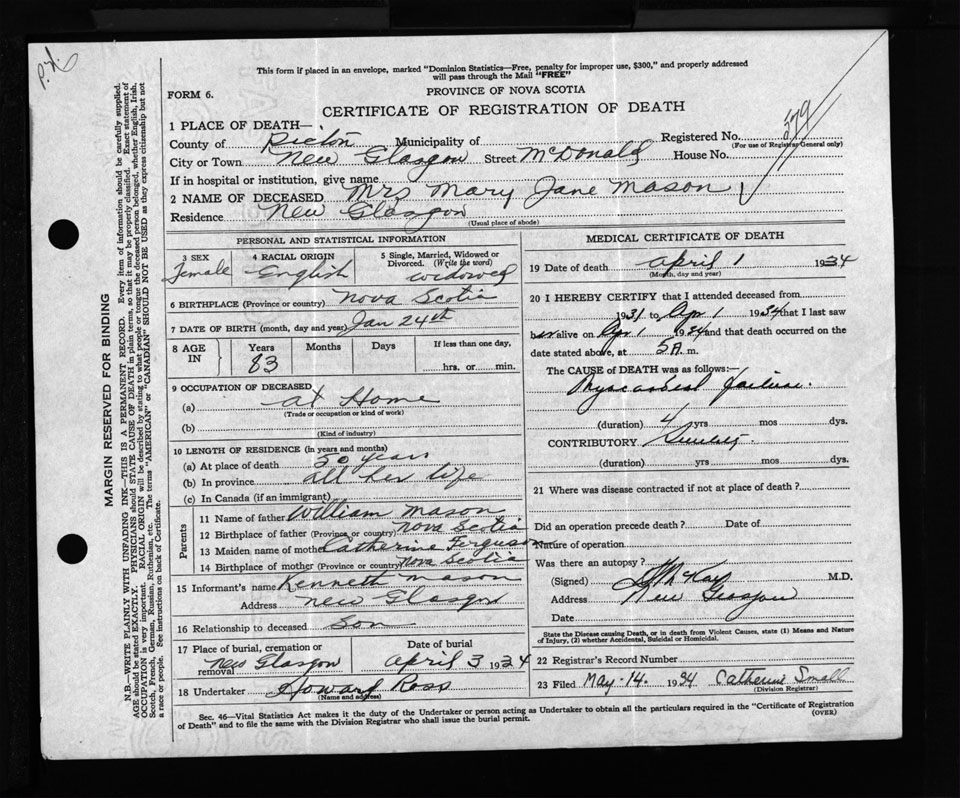 This form if placed in an envelope, marked "Dominion Statistics—Free, penalty for improper use, $300," and properly addressed
will pass through the Mail "FREE"
FORM 6.
PROVINCE OF NOVA SCOTIA
CERTIFICATE OF REGISTRATION OF DEATH
1 PLACE OF DEATH—
County of Pictou Municipality of Registered No.
(For use of Registrar General only)
City or Town New Glasgow Street McDonald House No.
If in hospital or institution, give name
2 NAME OF DECEASED Mrs Mary Jane Mason
Residence New Glasgow
(Usual place of abode)
PERSONAL AND STATISTICAL INFORMATION
3 SEX Female
4 RACIAL ORIGIN English
5 Single, Married, Widowed or
Divorced. (Write the word)
widowed
6 BIRTHPLACE (Province or country) Nova Scotia
7 DATE OF BIRTH (month, day and year) Jan 24th
8 AGE IN
Years 83
Months
Days
If less than one day,
hrs. or min.
9 OCCUPATION OF DECEASED
(a) at Home
(Trade or occupation or kind of work)
(b)
(Kind of industry)
10 LENGTH OF RESIDENCE (in years and months)
(a) At place of death 50 years
(b) In province all her life
(c) In Canada (if an immigrant)
Parents
11 Name of father William Mason
12 Birthplace of father (Province or country) Nova Scotia
13 Maiden name of mother Catherine Ferguson
14 Birthplace of mother (Province or country) Nova Scotia
15 Informant's name Kenneth Mason
Address New Glasgow
16 Relationship to deceased Son
17 Place of burial, cremation or
removal New Glasgow
Date of burial
April 3 1934
18 Undertaker Howard Ross
(Name and address)
MEDICAL CERTIFICATE OF DEATH
19 Date of death April 1 1934
(Month, day and year)
20 I HEREBY CERTIFY that I attended deceased from
1931 to Apr 1 1934 that I last saw
her alive on Apr 1 1934 and that death occurred on
date stated above, at 5 A. m.
The CAUSE of DEATH was as follows:—
Myocardial failure
(duration) 4 yrs mos dys.
CONTRIBUTORY Senility
(duration) yrs mos dys.
21 Where was disease contracted if not at place of death?
Did an operation precede death? Date of
Nature of operation
Was there an autopsy?
(Signed) McKay M.D.
Address New Glasgow
Date
State the Disease causing Death, or in death from Violent Causes, state (1) Means and Nature
of Injury, (2) whether Accidental, Suicidal or Homicidal.
22 Registrar's Record Number
23 Filed May-14. 1934 Catherine Small
(Division Registrar)
Sec. 46—Vital Statistics Act makes it the duty of the Undertaker or person acting as Undertaker to obtain all the particulars required in the "Certificate of Registration
of Death" and to file the same with the Division Registrar who shall issue the burial permit.
(OVER)
MARGIN RESERVED FOR BINDING
N.B.—WRITE PLAINLY WITH UNFADING INK—THIS IS A PERMANENT RECORD. Every item of information should be carefully supplied.
AGE should be stated EXACTLY. PHYSICIANS should STATE CAUSE OF DEATH in plain terms, so that it may be properly classified. Exact statement of
OCCUPATION is very important. RACIAL ORIGIN will be described by stating to what people or tongue the deceased person belonged, whether English, Irish,
Scotch, French, German, Russian, Ruthenian, etc. The terms "AMERICAN" or "CANADIAN" SHOULD NOT BE USED as they express citizenship but not
a race or people. See instructions on back of Certificate.